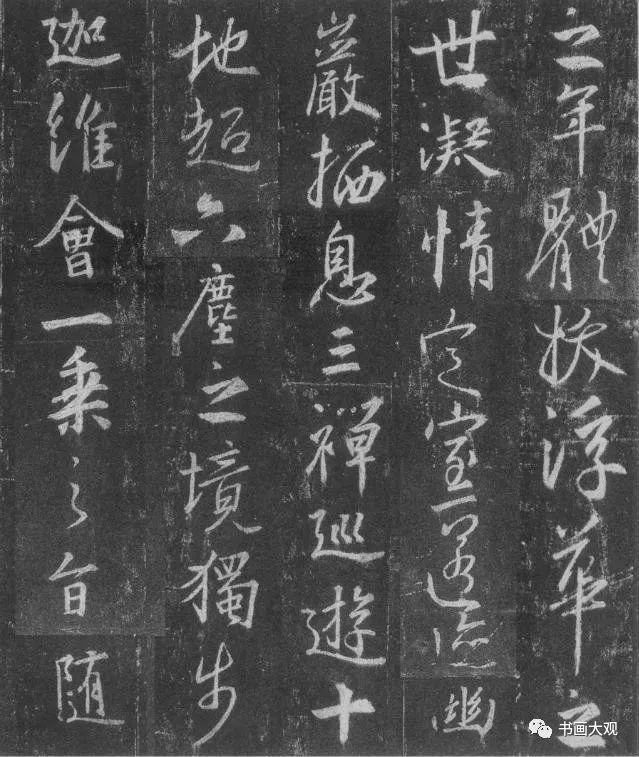 之年體拔浮華之
世凝情定室匿迹幽
巖栖息三禪巡遊十
地超六塵之境獨步
迦維會一乘之旨随
书画大观